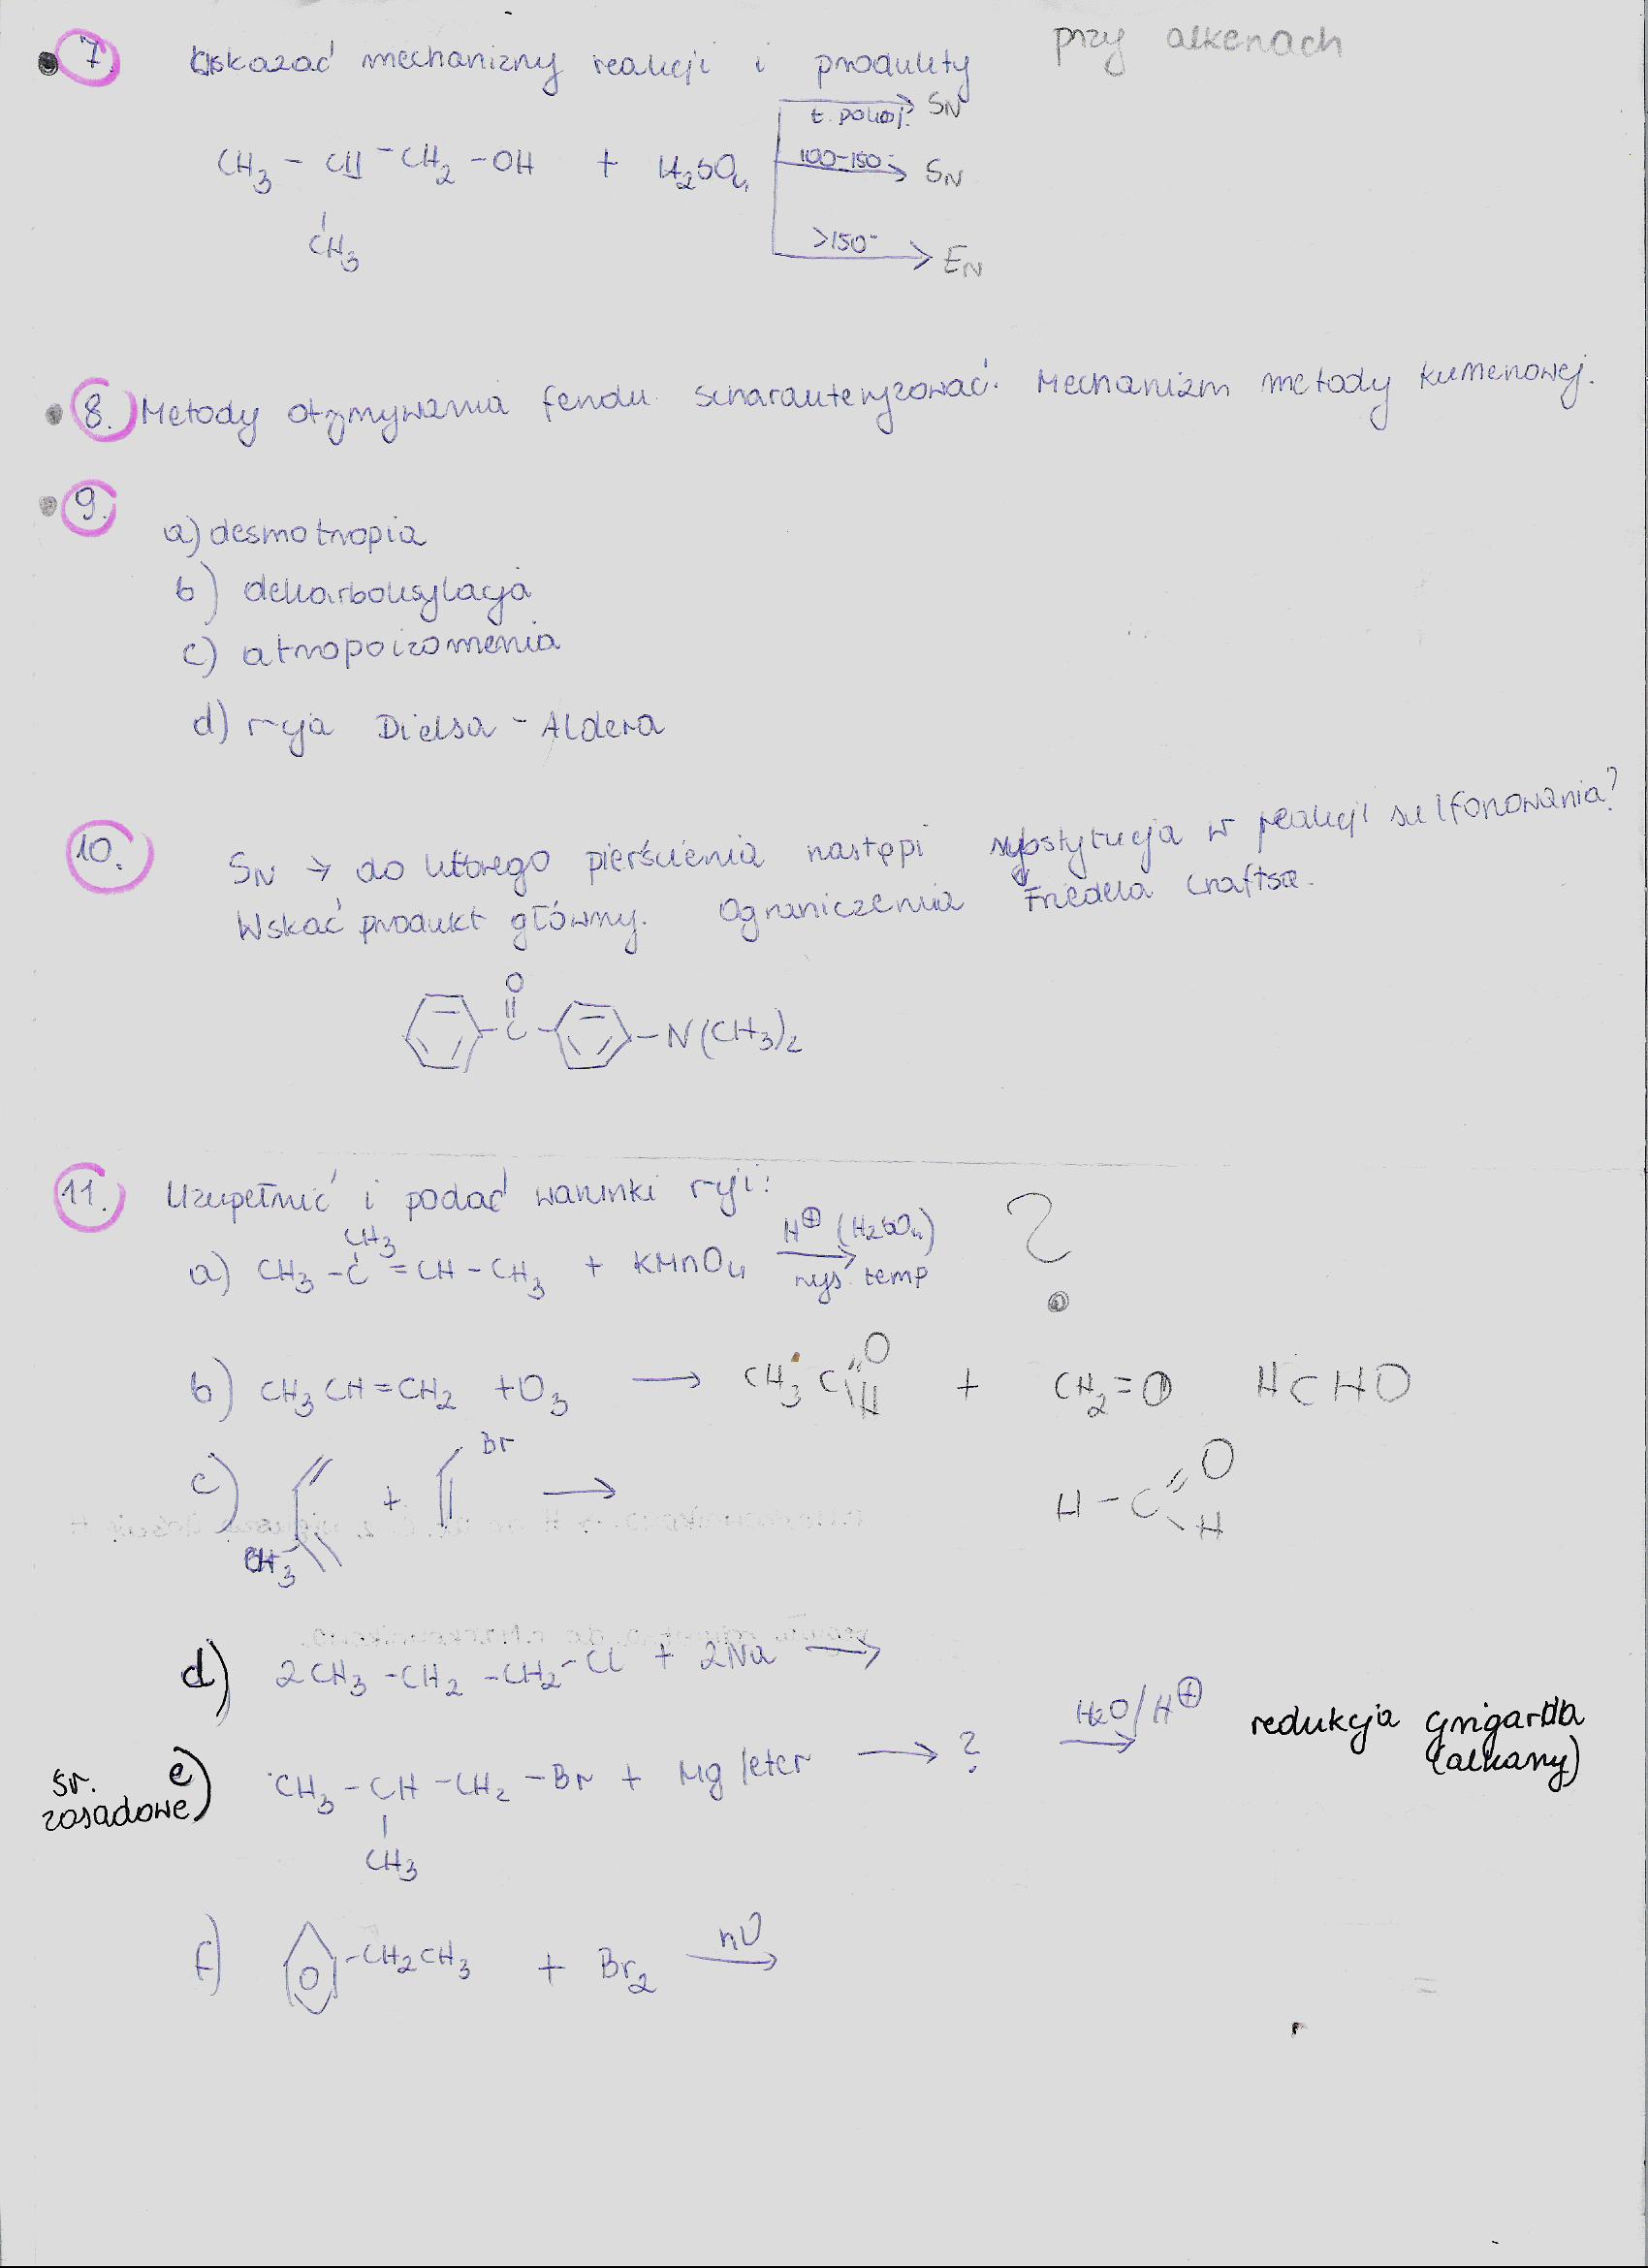 7. Wskazać mechanizmy reakcji i produkty przy alkenach
t. pokoj. SN
CH3 - CH - CH2 - OH + H2SO4 100-150° SN
CH3 >150° EN
8. Metody otrzymywania fenolu scharakteryzować. Mechanizm metody kumenowej.
9.
a) desmotropia
b) dekarboksylacja
c) atropoizomeria
d) r-cja Dielsa - Aldera
10. SN → do którego pierścienia nastąpi substytucja w reakcji sulfonowania?
Wskać produkt główny. Ograniczenia Friedela Craftsa.
O
C - N(CH3)2
11. Uzupełnić i podać warunki r-cji:
CH3 H⊕ (H2SO4)
a) CH3 - C = CH - CH3 + KMnO4 wys. temp ?
b) CH3CH=CH2 + O3 → CH3C O H + CH2=O HCHO
c) CH3 + Br → H - C O H
d) 2CH3 - CH2 - CH2 - Cl + 2Na →
śr. zasadowe e) CH3 - CH - CH2 - Br + Mg/eter → ? H2O/H⊕ → redukcja Grigarda (alkany)
CH3
f) -CH2CH3 + Br2 hν →